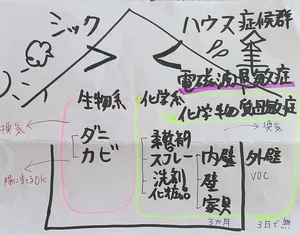 シック ハウス症候群
電磁波過敏症
化学物質過敏症
生物系 化学系
換気
換気
ダニ
カビ
柔軟剤
スプレー
洗剤
化粧品
内壁
壁
家具
外壁
VOC
3カ月
3日で無